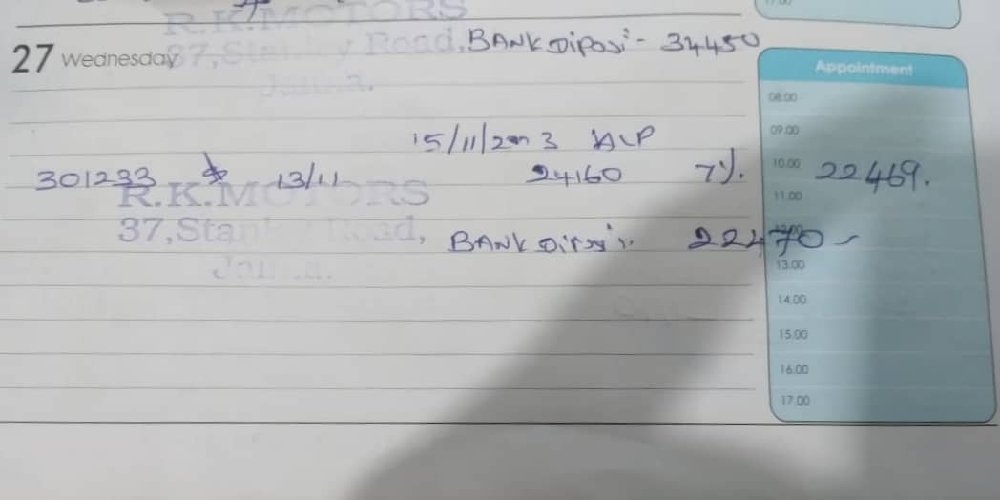 R.K.MOTORS
27 Wednesday 37,Stanley Road, BANK Diposi - 34450
Jaffna.
Appointment
08.00
09.00
15/11/2023 ALP
301233 13/11 24160 7%. 10.00 22469.
R.K.MOTORS
11.00
37,Stanley Road, BANK 22470 -
13.00
14.00
15.00
16.00
17.00